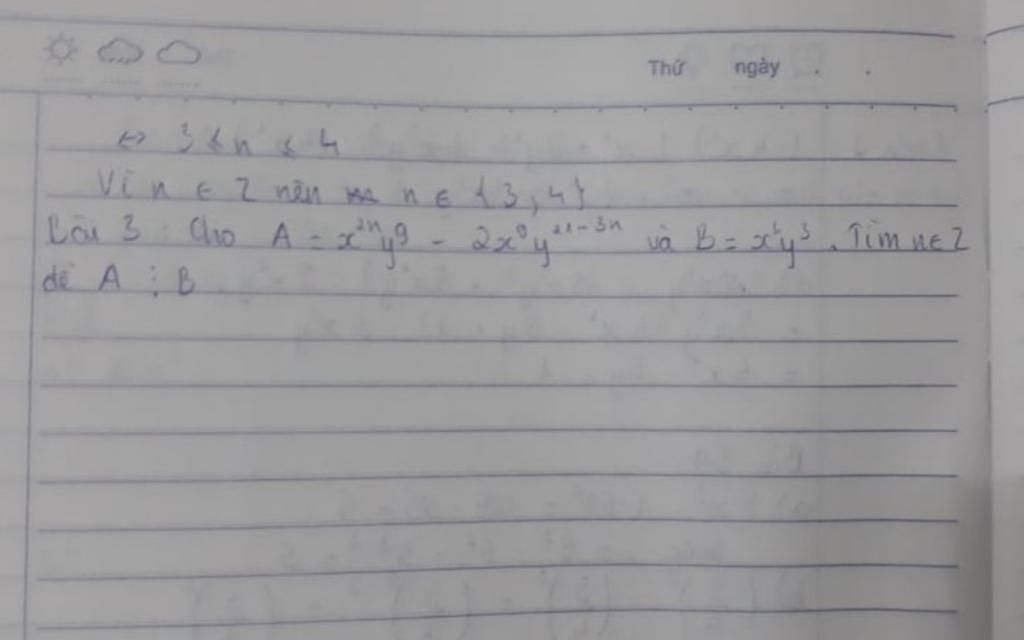 Thứ ngày . .
<=> 3 ≤ n ≤ 4
Vì n ∈ Z nên n ∈ {3, 4}
Bài 3 : Cho A = x²ⁿy⁹ - 2x⁹y²¹⁻³ⁿ và B = x⁶y³. Tìm n ∈ Z
để A ⋮ B